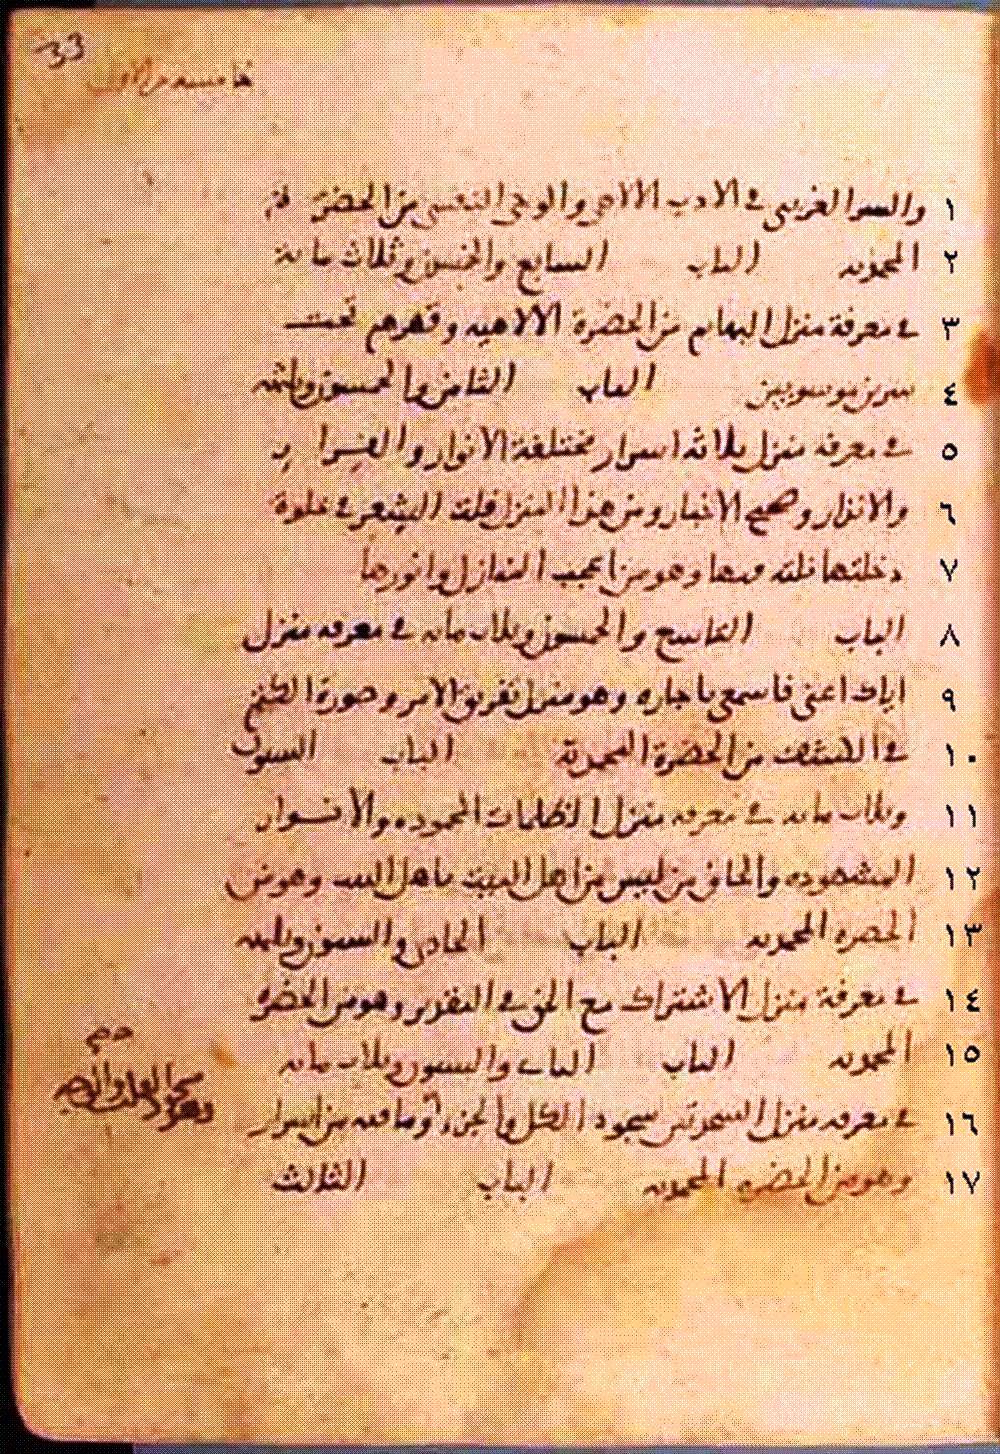 33
خامسه من الاول
١ والسر الغربى فى الادب الالاهى والوحى النفسى من الحضرة
٢ المحمديه الباب السابع والخمسون وثلاث مائة
٣ فى معرفة منزل البهائم من الحضرة الالاهيه وقهرهم تحت
٤ سرين موسويين الباب الثامن والخمسون وثلثمائه
٥ فى معرفه منزل ثلاثه اسرار مختلفة الانوار والفرار
٦ والانذار وصحيح الاخبار ومن هذا المنزل قلت الشعر فى خلوة
٧ دخلتها نلته فيها وهو من اعجب المنازل وانورها
٨ الباب التاسع والخمسون وثلاث مائه فى معرفه منزل
٩ اياك اعنى فاسمعى يا جاره وهو منزل تفريق الامر وصورة الكتم
١٠ فى الكشف من الحضرة المحمدية الباب الستون
١١ وثلاث مائه فى معرفه منزل الظلمات المحموده والانوار
١٢ المشهوده والحاق من ليس من اهل البيت باهل البيت وهو من
١٣ الحضره المحمديه الباب الحادى والستون وثلثمائه
١٤ فى معرفة منزل الاشتراك مع الحق فى التقدير وهو من الحضره
١٥ المحمديه الباب الثانى والستون وثلاث مائه
١٦ فى معرفه منزل السجدتين سجود الكل والجزء وما فيه من اسرار
١٧ وهو من الحضره المحمديه الباب الثالث
سجود القلب والوجه